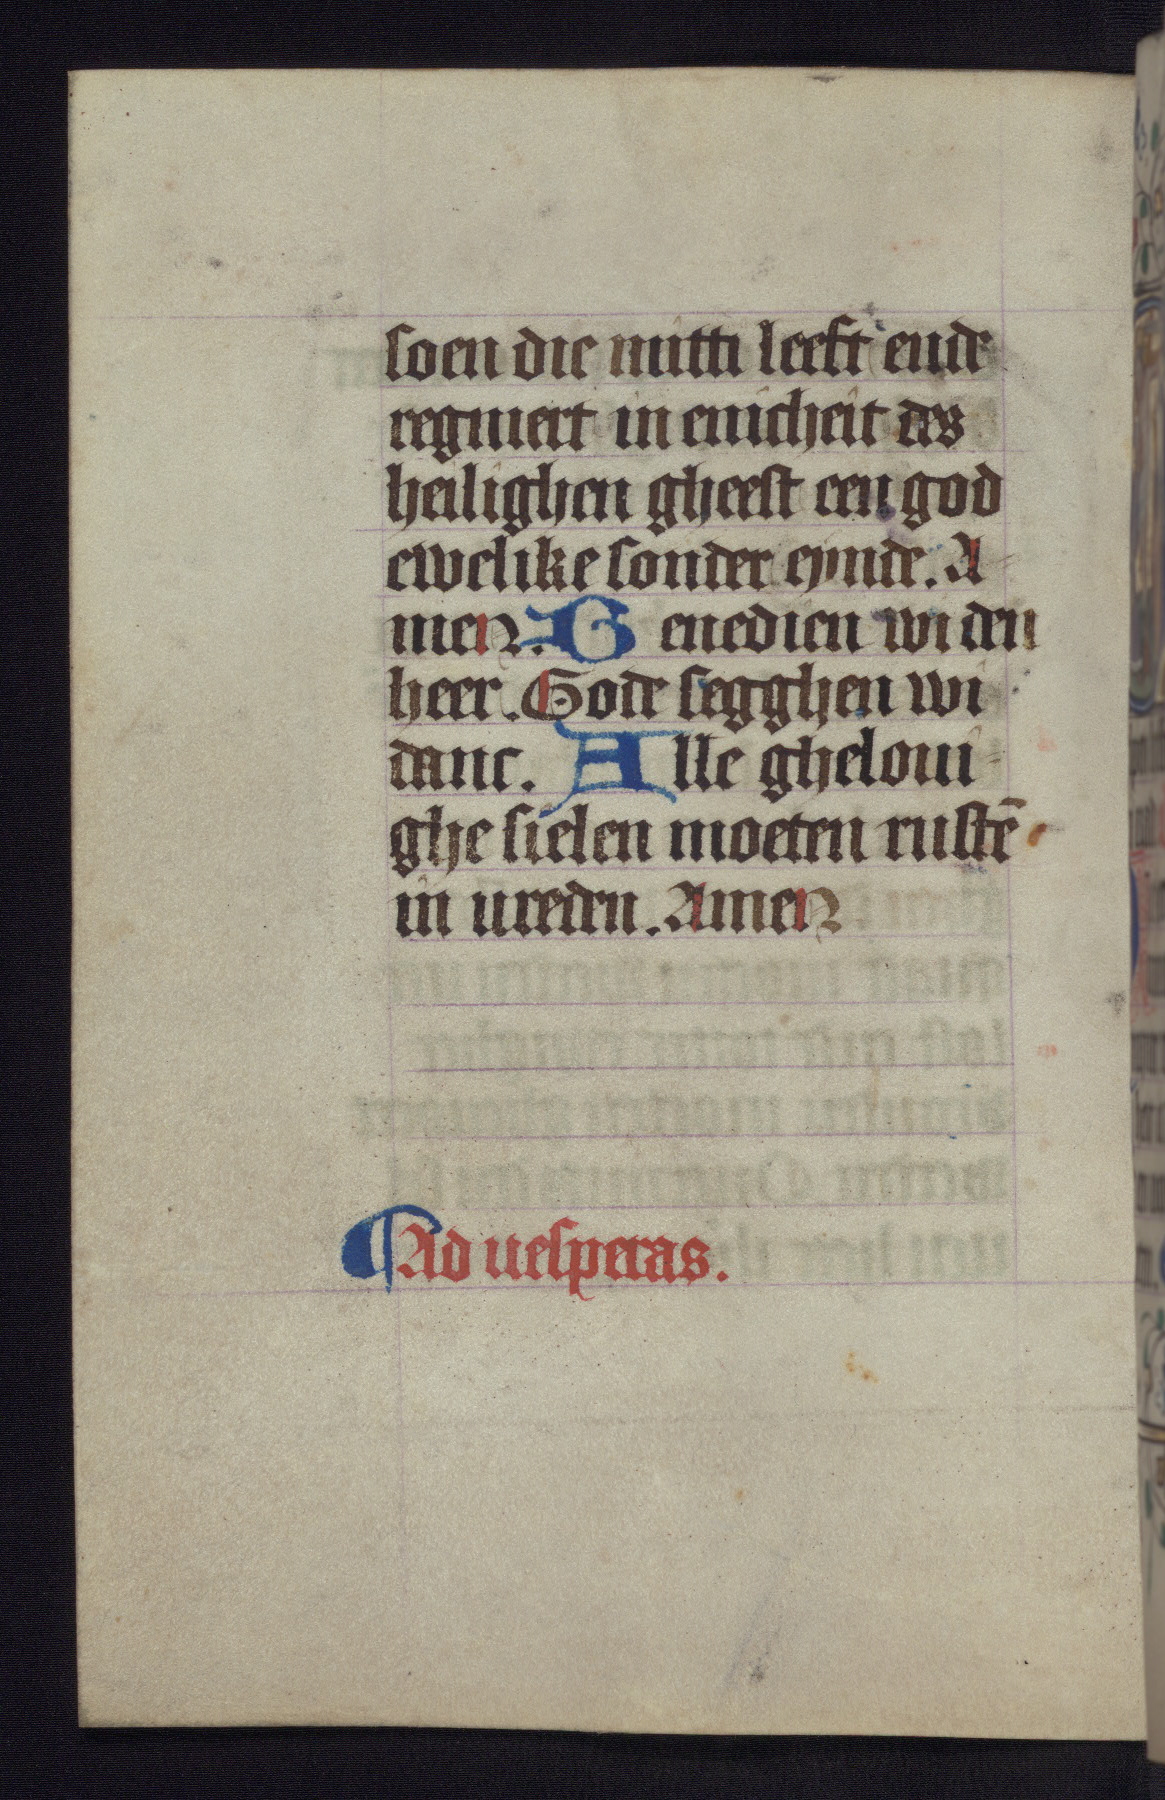 soen die mitti leeft ende
regniert in enicheit des
heilighen gheest een god
ewelike sonder eynde. A
men. G enedien wi den
heer. Gode segghen wi
danc. Alle gheloui
ghe sielen moeten rustē
in ureden. Amen
¶ Ad uesperas.